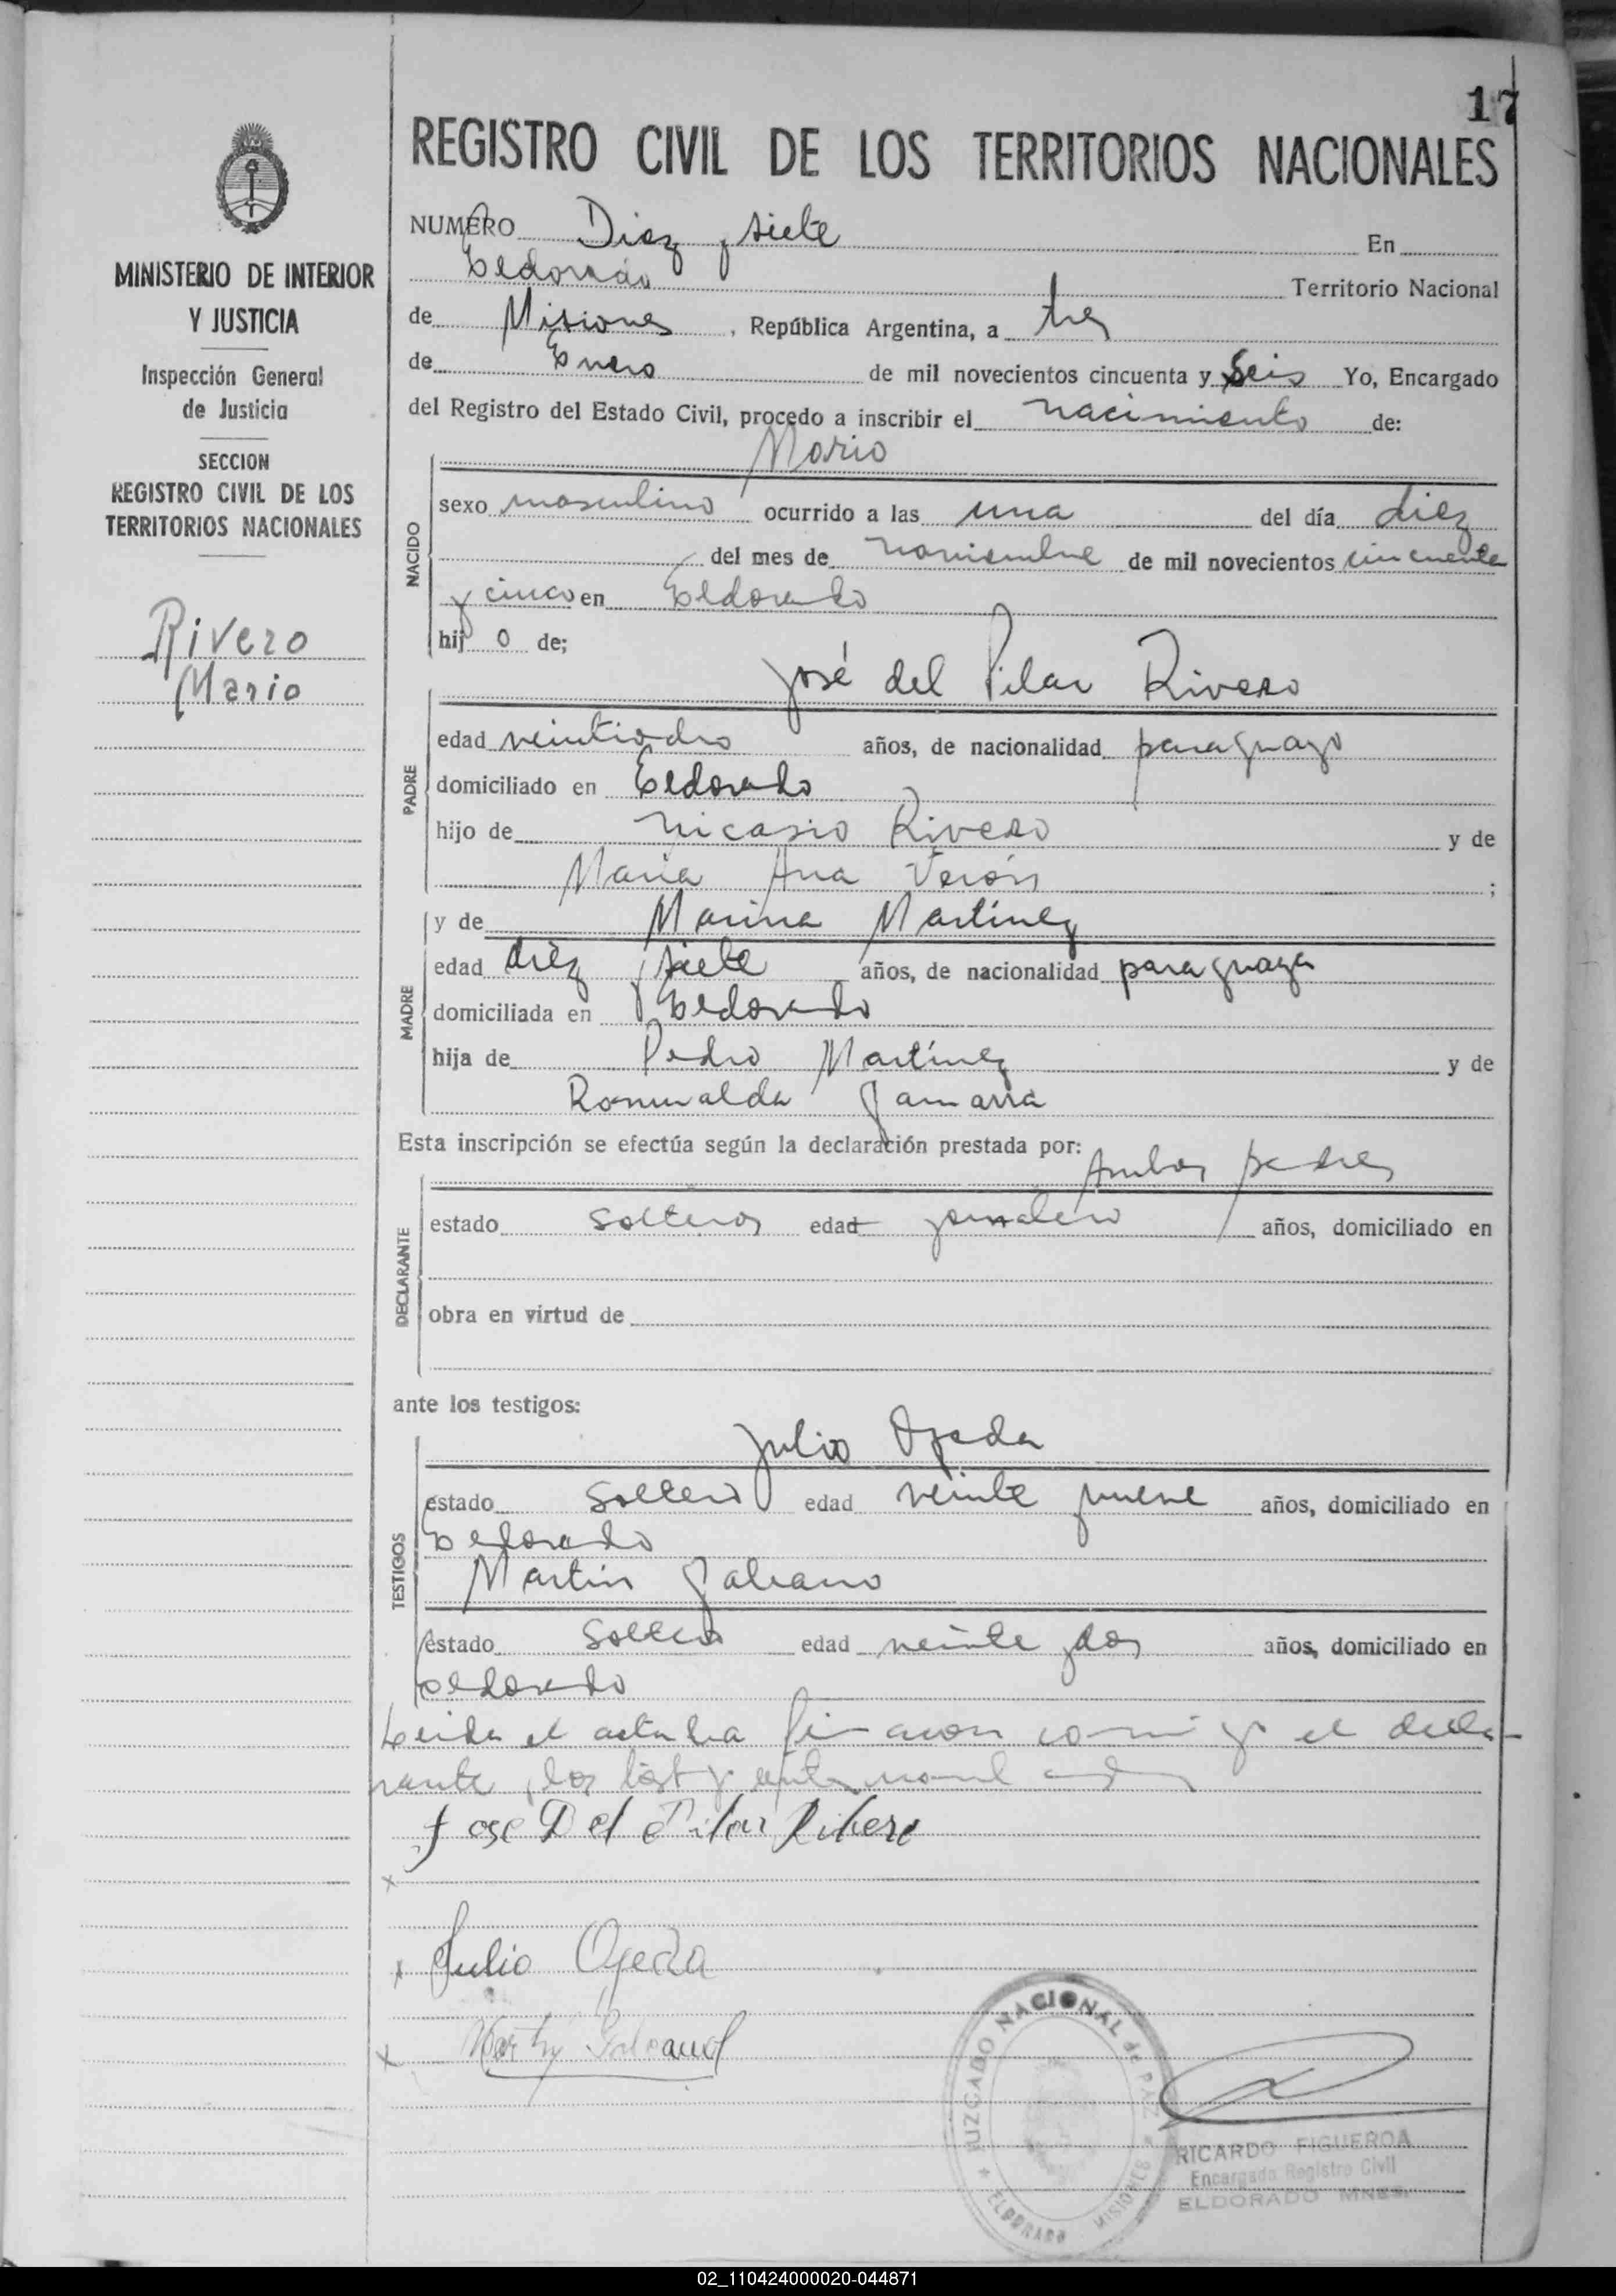 17
REGISTRO CIVIL DE LOS TERRITORIOS NACIONALES
MINISTERIO DE INTERIOR
Y JUSTICIA
Inspección General
de Justicia
SECCION
REGISTRO CIVIL DE LOS
TERRITORIOS NACIONALES
Rivero
Mario
NUMERO Diez y siete En
Eldorado Territorio Nacional
de Misiones, República Argentina, a tres
de Enero de mil novecientos cincuenta y Seis Yo, Encargado
del Registro del Estado Civil, procedo a inscribir el nacimiento de:
Mario
NACIDO
sexo masculino ocurrido a las una del día diez
del mes de noviembre de mil novecientos cincuenta
y cinco en Eldorado
hij o de;
José del Pilar Rivero
PADRE
edad años, de nacionalidad paraguayo
domiciliado en Eldorado
hijo de Nicasio Rivero y de
Maria Ana Verón ;
y de Marina Martínez
MADRE
edad diez y siete años, de nacionalidad paraguaya
domiciliada en Eldorado
hija de Pedro Martínez y de
Romualda Gamarra
Esta inscripción se efectúa según la declaración prestada por: Ambos padres
DECLARANTE
estado solteros edad jornalero años, domiciliado en
obra en virtud de
ante los testigos:
Julio Ojeda
TESTIGOS
estado soltero edad veinte y nueve años, domiciliado en
Eldorado
Martín Galeano
estado soltero edad veinte y dos años, domiciliado en
Eldorado
Leida el acta la firman conmigo el decla-
rante, los
José Del Pilar Ribero
x
x Julio Ojeda
x Galeano
JUZGADO NACIONAL de PAZ
* ELDORADO MISIONES *
RICARDO FIGUEROA
Encargado Registro Civil
ELDORADO MNES.
02_110424000020-044871